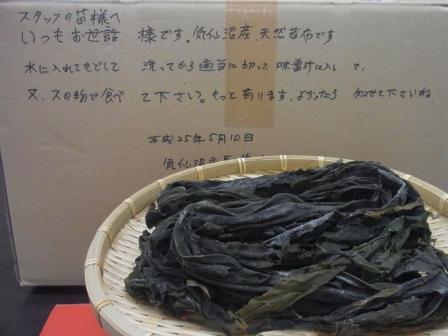 スタッフの皆様へ
いつもお世話 様です。気仙沼産、天然若布です
水に入れてもどして 洗ってから適当に切って 味噌汁に入し て、
又、スの物で食べ て下さい。もっと有ります、よかったら 知せて下さいね
平成25年5月10日
気仙沼市